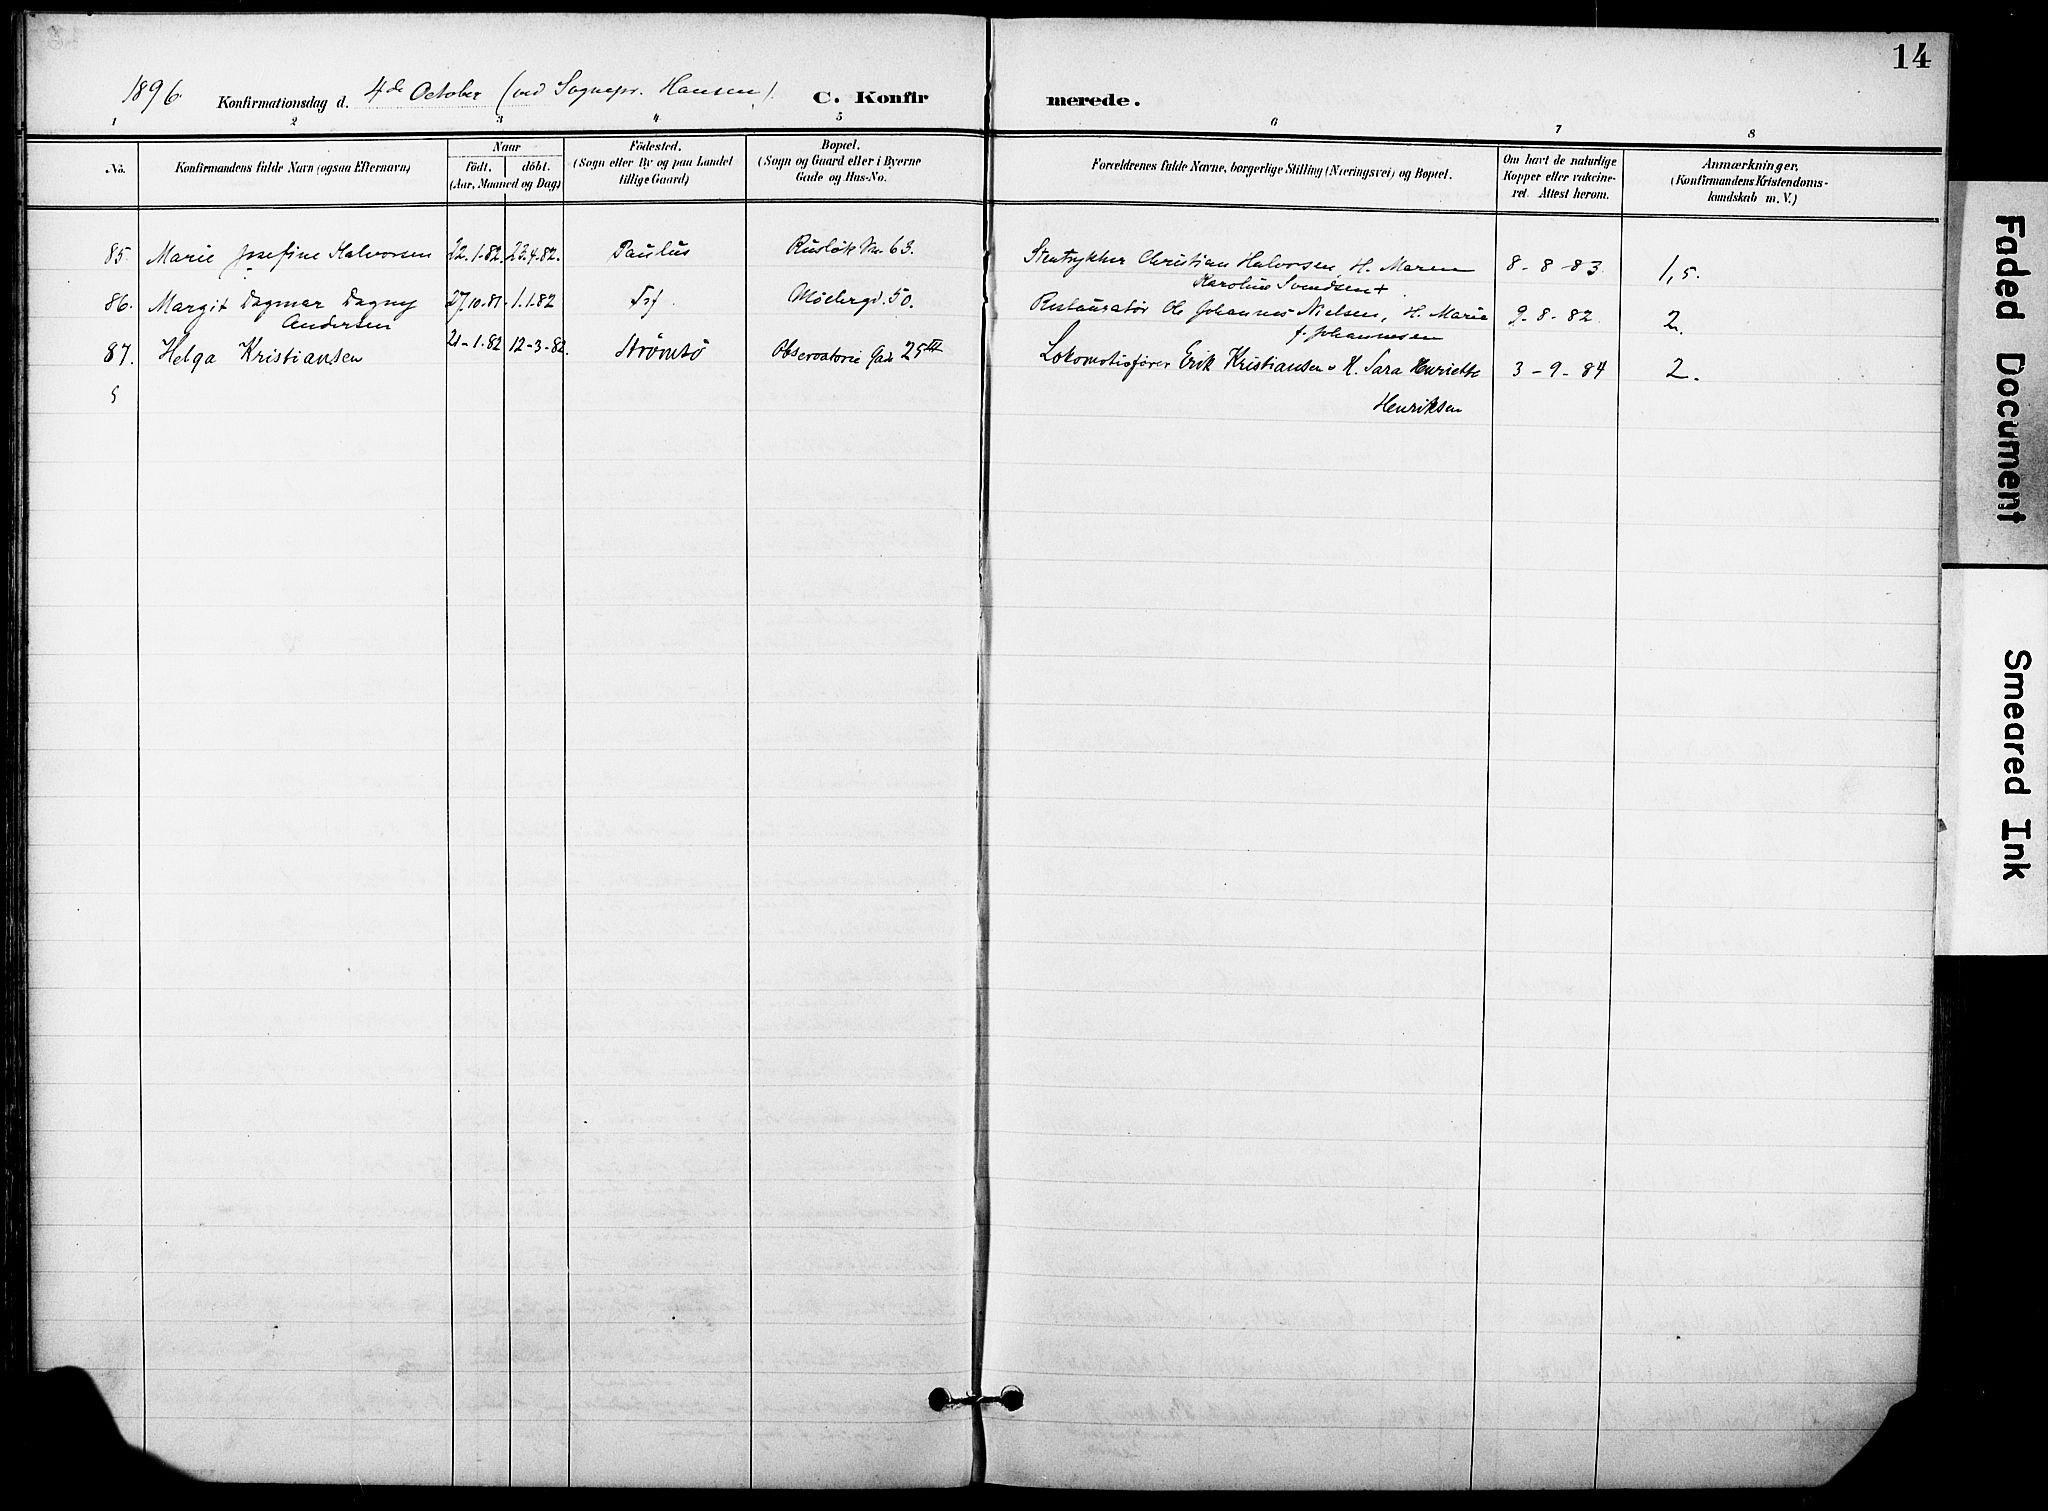 14
1896 Konfirmationsdag d. 4de October (ved Sognepr. Hansen). C. Konfirmerede.
1 2 3 4 5 6 7 8
No.
Konfirmandens fulde Navn (ogsaa Efternavn)
Naar
födt. döbt.
(Aar, Maaned og Dag)
Födested.
(Sogn eller By og paa Landet
tillige Gaard)
Bopæl.
(Sogn og Gaard eller i Byerne
Gade og Hus-No.
Forældrenes fulde Navne, borgerlige Stilling (Næringsvei) og Bopæl.
Om havt de naturlige
Kopper eller vakcine-
ret. Attest herom.
Anmærkninger.
(Konfirmandens Kristendoms-
kundskab m. V.)
85. Marie Josefine Halvorsen 22.1.82. 23.4.82. Paulus Rusløkvn. 63. Stentrykker Christian Halvorsen, H. Maren 8-8-83. 1,5.
Karoline Svendsen +
86. Margit Dagmar Dagny 27.10.81. 1.1.82 50. Restauratør Johannes Nielsen, H. Marie 9-8-82. 2.
Andersen f. Johannesen
87. Helga Kristiansen 21-1.82 12-3-82. Strømsö Observatorie Gade 25III Lokomotivfører Erik Kristiansen o H. Sara Henriette 3-9-84 2.
Henriksen
Faded Document
Smeared Ink